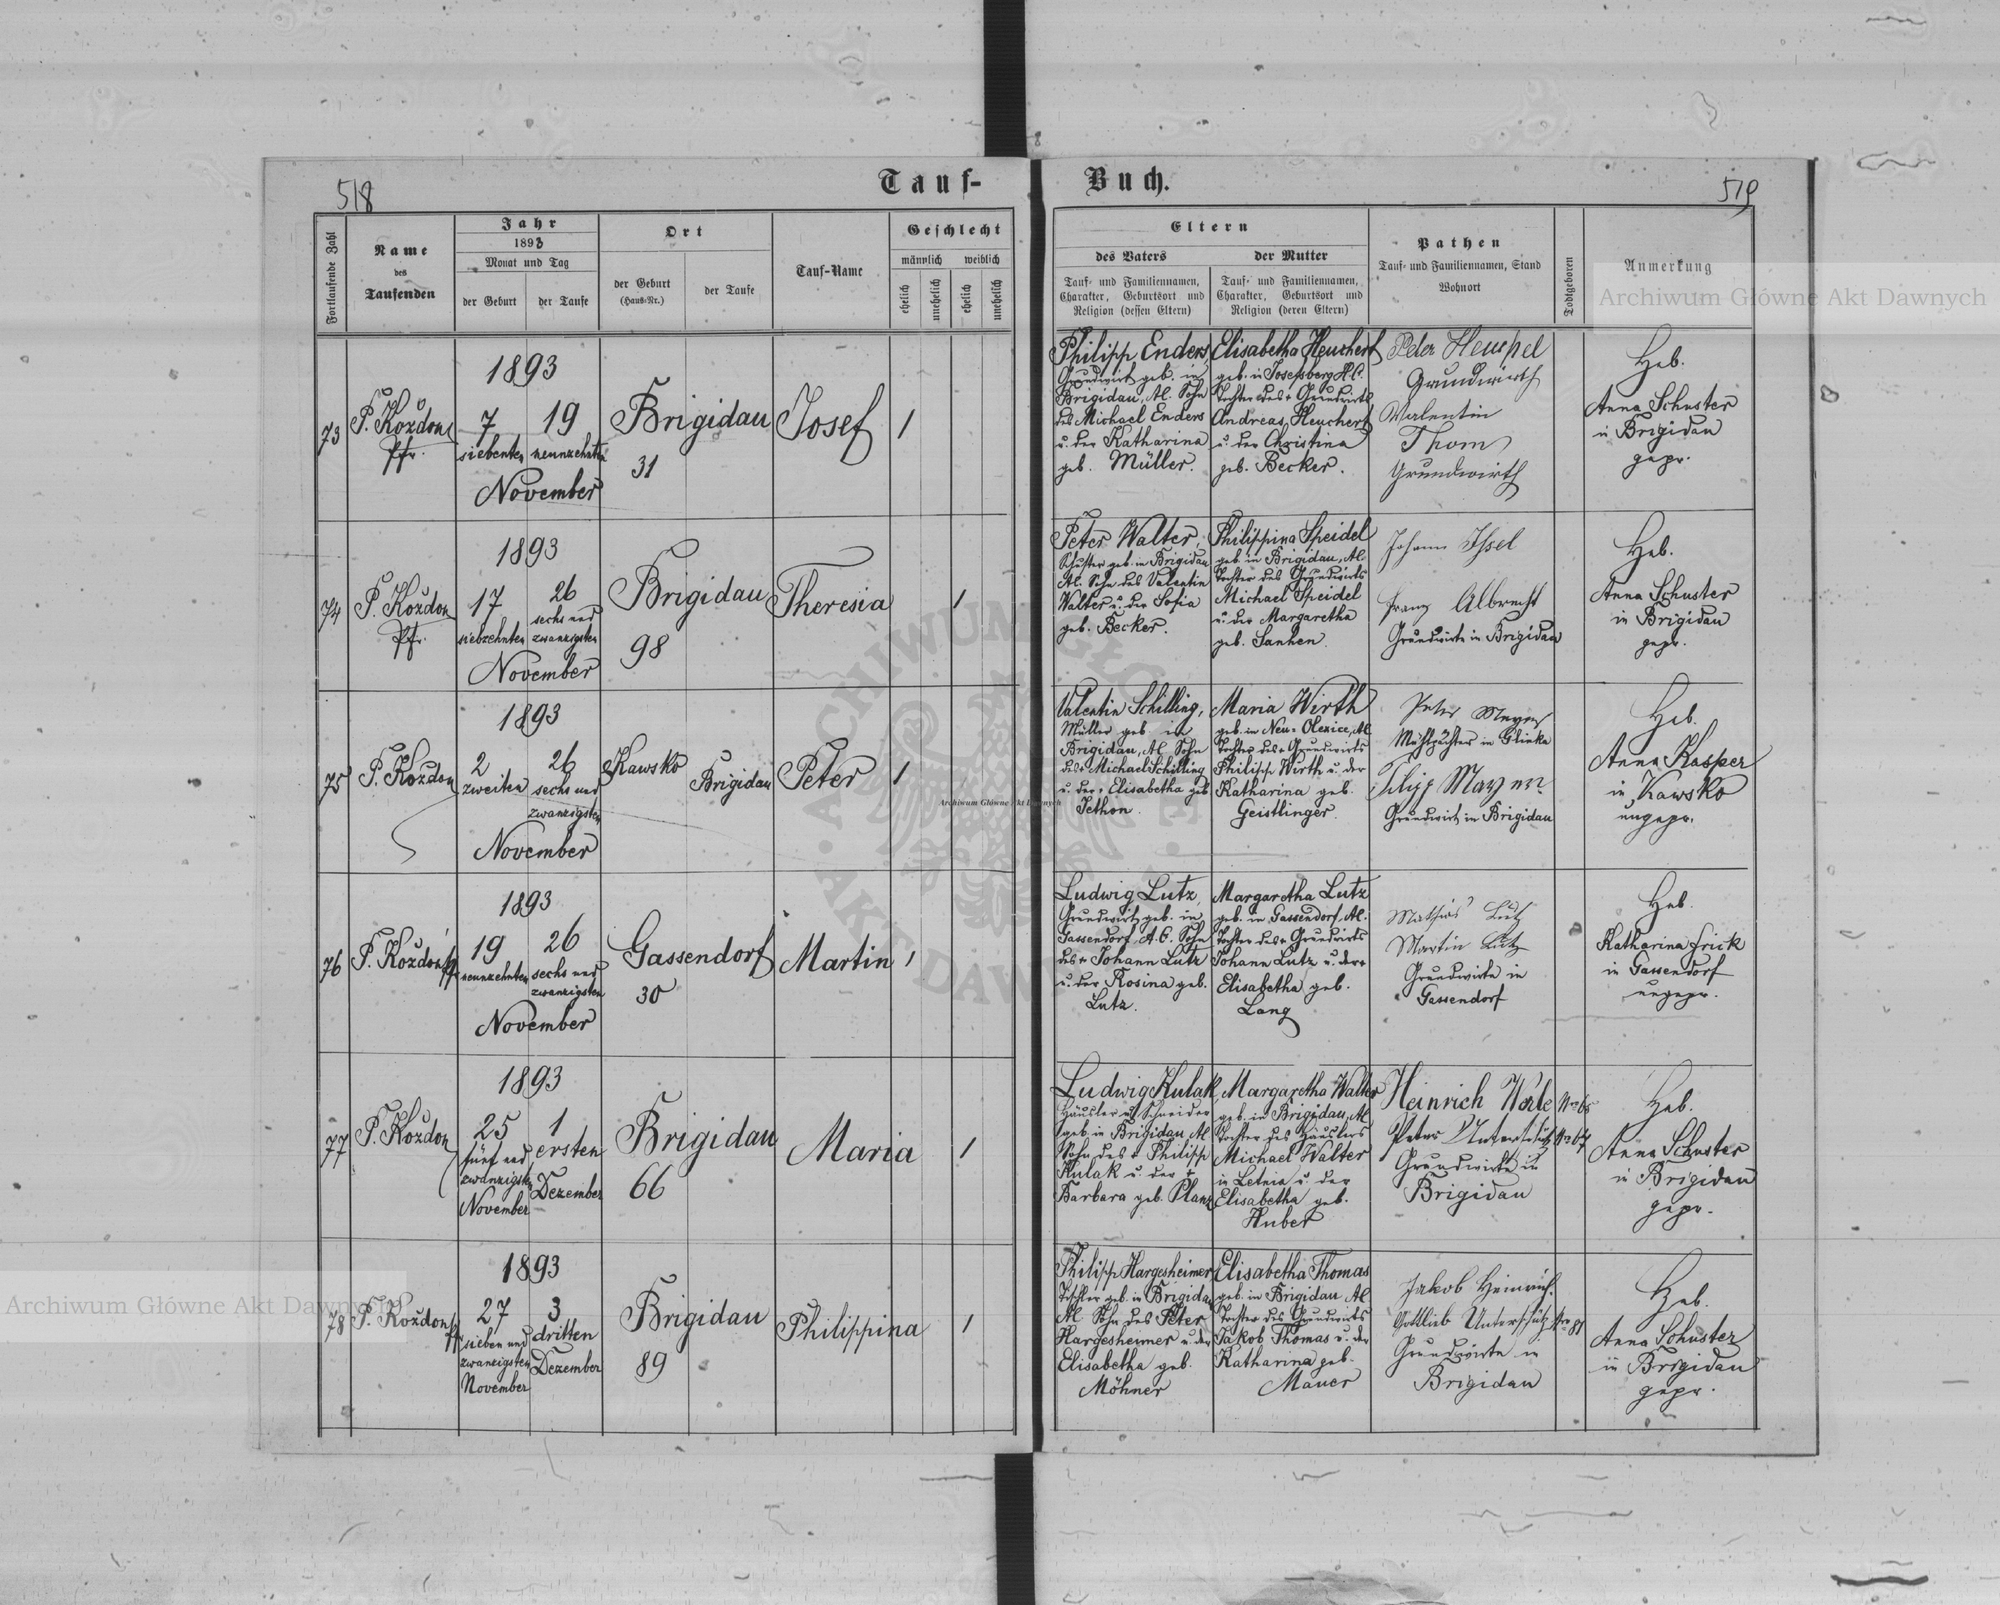 518
Tauf-
Buch.
519
Fortlaufende Zahl
Name
des
Taufenden
Jahr
1893
Monat und Tag
der Geburt
der Taufe
Ort
der Geburt
(Haus-Nr.)
der Taufe
Tauf-Name
Geschlecht
männlich
weiblich
ehelich
unehelich
ehelich
unehelich
Eltern
des Vaters
der Mutter
Tauf- und Familiennamen,
Charakter, Geburtsort und
Religion (dessen Eltern)
Tauf- und Familiennamen,
Charakter, Geburtsort und
Religion (deren Eltern)
Pathen
Tauf- und Familiennamen, Stand
Wohnort
Todtgeboren
Anmerkung
73
P. Koždon
Pfr.
1893
7
siebenten
19
neunzehnten
November
Brigidau
31
Josef
1
Philipp Enders,
Grundwirt geb. in
Brigidau, Al. Sohn
des Michael Enders
u. der Katharina
geb. Müller.
Elisabetha Heuchert
geb. in Josefsberg H.C.
Tochter des + Grundwirts
Andreas Heuchert
u. der Christina
geb. Becker.
Peter Heuchel
Grundwirth
Valentin
Thom
Grundwirth
Heb.
Anna Schuster
in Brigidau
gepr.
74
P. Koždon
Pfr.
1893
17
siebzehnten
26
sechs und
zwanzigsten
November
Brigidau
98
Theresia
1
Peter Walter,
Schuster geb. in Brigidau
Al. Sohn des Valentin
Walter u. der Sofia
geb. Becker.
Philippina Speidel
geb. in Brigidau, Al.
Tochter des Grundwirts
Michael Speidel
u. der Margaretha
geb. Sanken.
Johann Issel
Franz Albrecht
Grundwirte in Brigidau
Heb.
Anna Schuster
in Brigidau
gepr.
75
P. Koždon
1893
2
zweiten
26
sechs und
zwanzigsten
November
Kawsko
Brigidau
Peter
1
Valentin Schilling,
Müller geb. in
Brigidau, Al. Sohn
des + Michael Schilling
u. der + Elisabetha geb
Jethon.
Maria Wirth
geb. in Neu-Olexice, Al
Tochter des + Grundwirts
Philipp Wirth u. der
Katharina geb.
Geistlinger.
Peter Meyer
Mühlpächter in Glinka
Filipp Mayer
Grundwirt in Brigidau
Heb.
Anna Kasper
in Kawsko
ungepr.
76
P. Koždon
1893
19
neunzehnten
26
sechs und
zwanzigsten
November
Gassendorf
30
Martin
1
Ludwig Lutz,
Grundwirt geb. in
Gassendorf, A.C. Sohn
des + Johann Lutz
u. der Rosina geb.
Lutz.
Margaretha Lutz
geb. in Gassendorf, Al.
Tochter des + Grundwirts
Johann Lutz u. der +
Elisabetha geb.
Lang
Mathias Lutz
Martin Lutz
Grundwirte in
Gassendorf
Heb.
Katharina Frick
in Gassendorf
ungepr.
77
P. Koždon
1893
25
fünf und
zwanzigsten
November
1
ersten
Dezember
Brigidau
66
Maria
1
Ludwig Kulak,
Häusler u. Schneider
geb. in Brigidau, Al
Sohn des + Philipp
Kulak u. der +
Barbara geb. Planz
Margaretha Walter
geb. in Brigidau, Al
Tochter des Häuslers
Michael Walter
in Letnia u. der
Elisabetha geb.
Huber
Heinrich
Peter Unterschütz
Grundwirte in
Brigidau
Heb.
Anna Schuster
in Brigidau
gepr.
78
P. Koždon
1893
27
sieben und
zwanzigsten
November
3
dritten
Dezember
Brigidau
89
Philippina
1
Philipp Hargesheimer
Tischler geb. in Brigidau
Al. Sohn des Peter
Hargesheimer u. der
Elisabetha geb.
Möhner
Elisabetha Thomas
geb. in Brigidau Al
Tochter des Grundwirts
Jakob Thomas u. der
Katharina geb.
Mauer
Jakob Heinrich.
Gottlieb Unterschütz
Grundwirte in
Brigidau
Heb.
Anna Schuster
in Brigidau
gepr.
Archiwum Główne Akt Dawnych
Archiwum Główne Akt Dawnych
Archiwum Główne Akt Dawnych